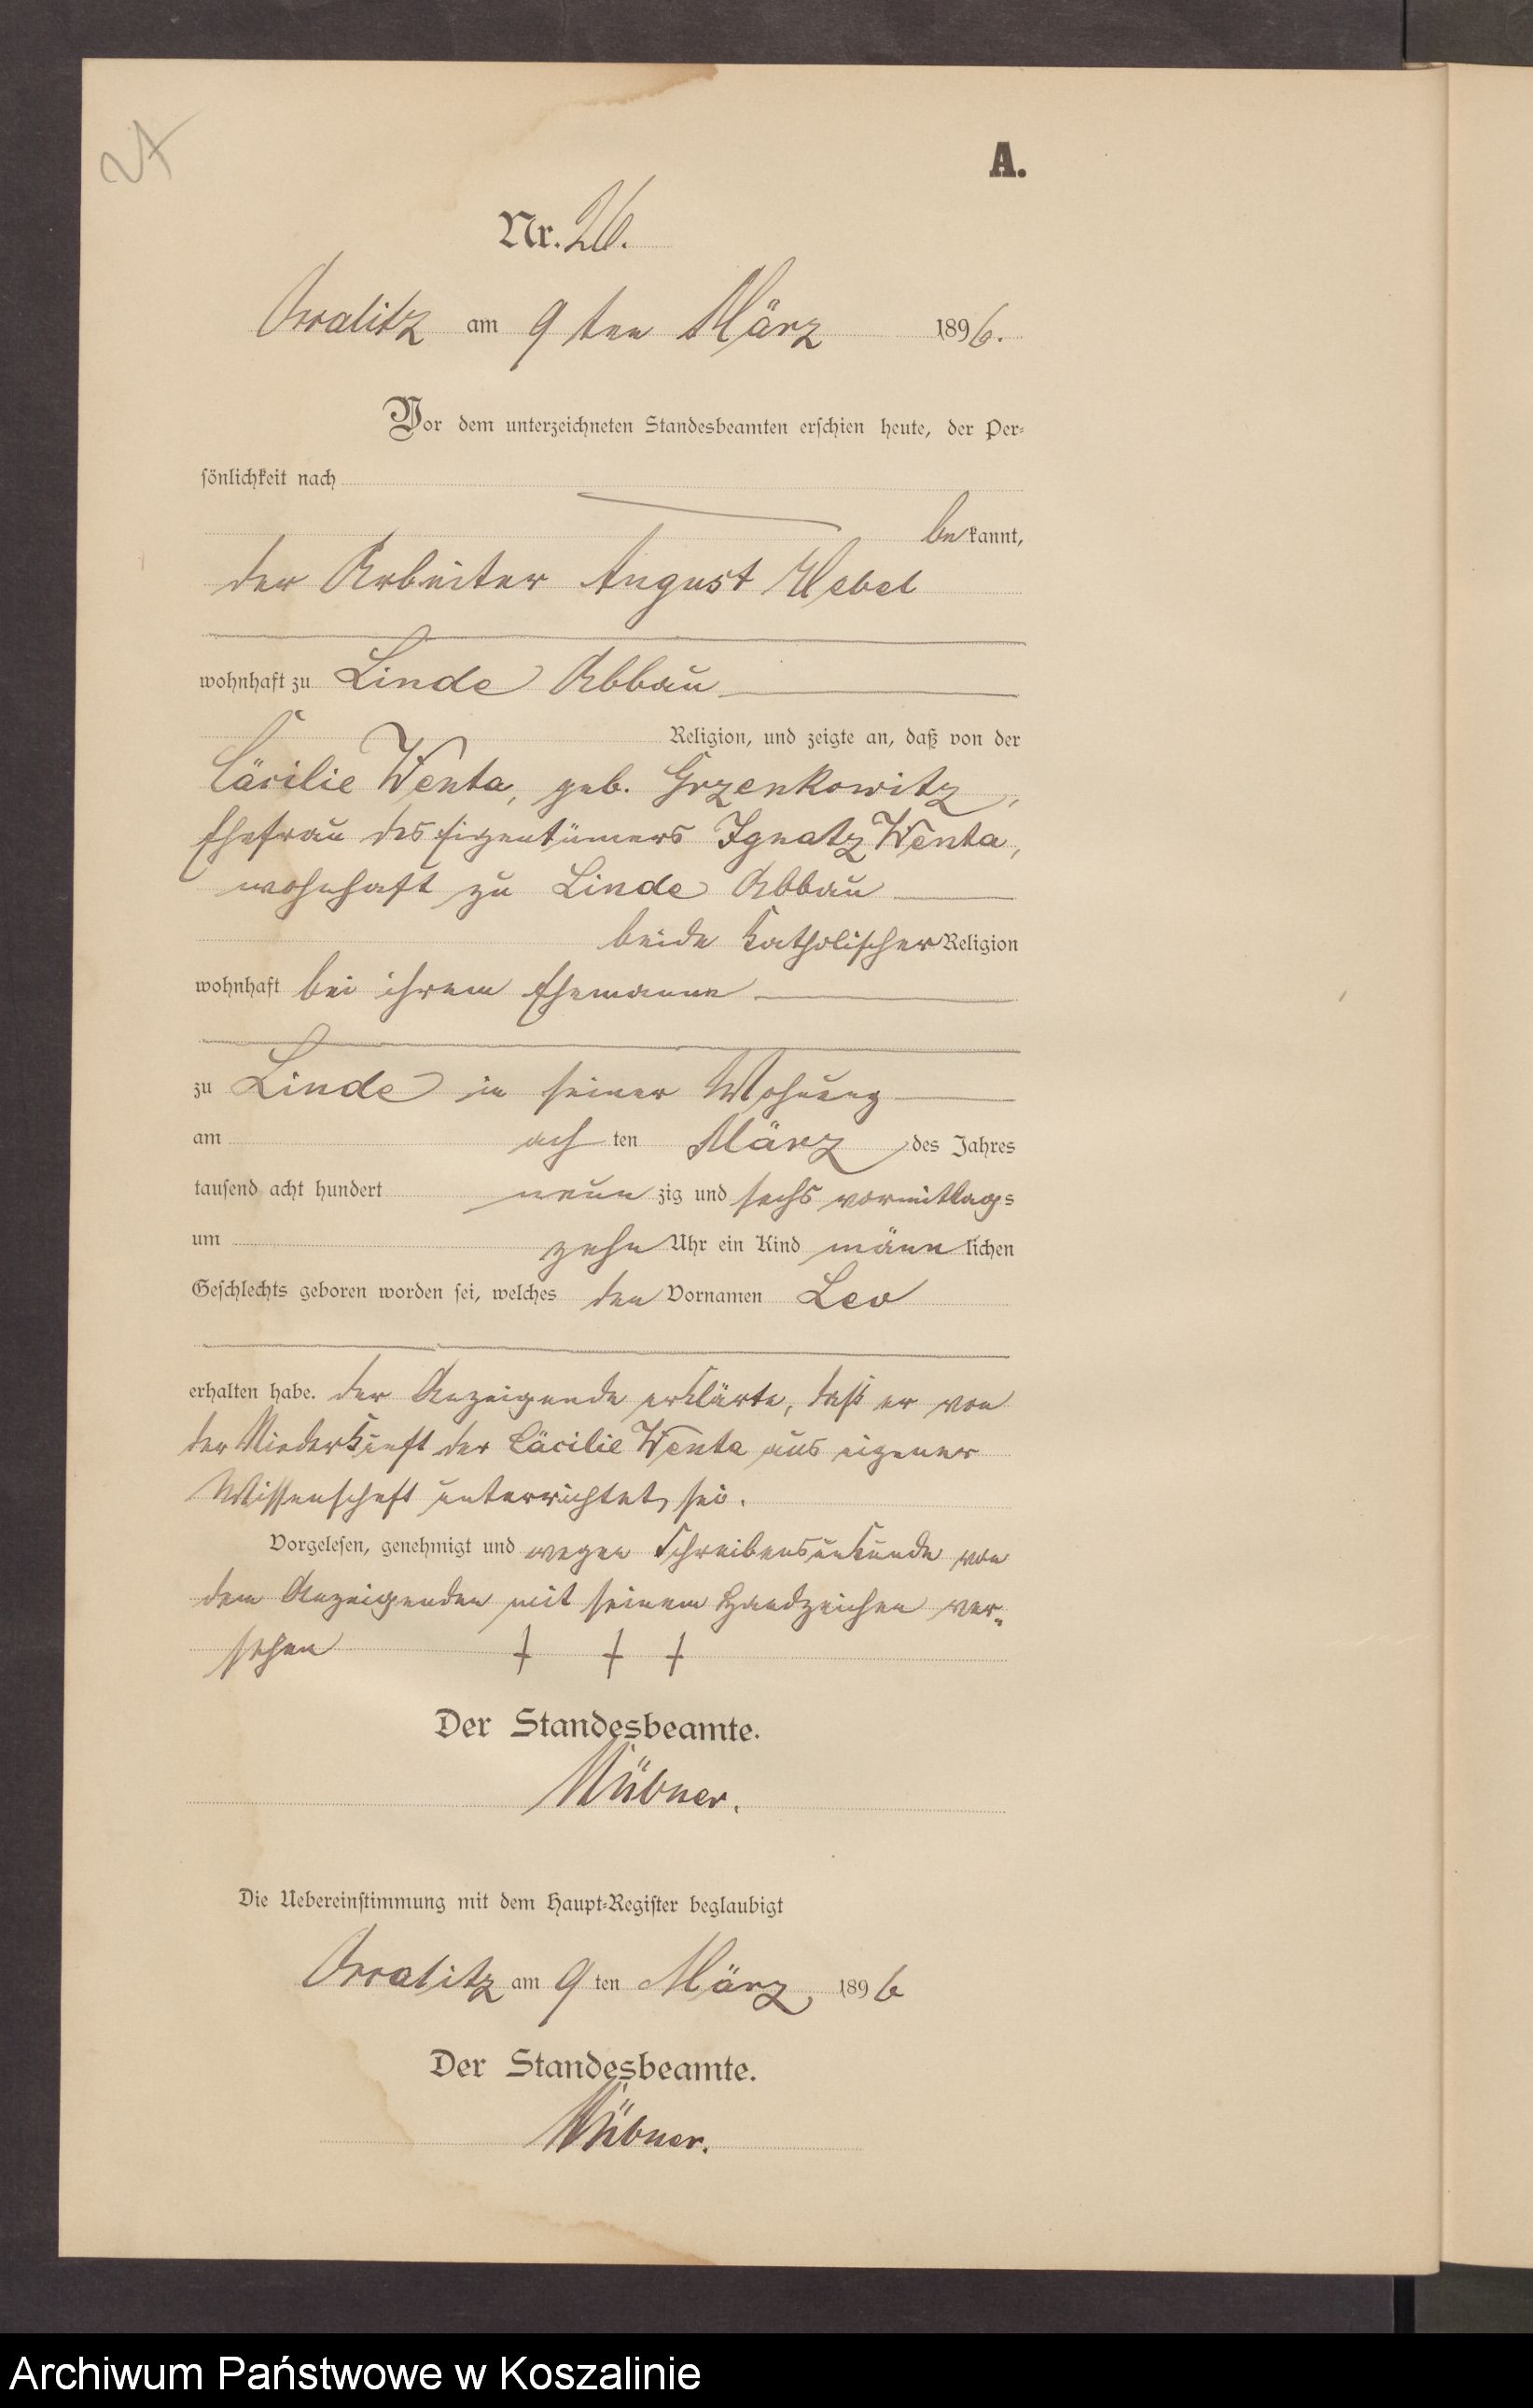 A.
Nr. 26.
am 9ten März 1896.
Vor dem unterzeichneten Standesbeamten erschien heute, der Per-
sönlichkeit nach
be kannt,
der Arbeiter August
wohnhaft zu Linde Abbau
Religion, und zeigte an, daß von der
Cäcilie Wenta, geb. Grzenkowitz,
Ehefrau des Eigentümers Ignatz Wenta,
wohnhaft zu Linde Abbau
beide katholischer Religion
wohnhaft bei ihrem Ehemanne
zu Linde in seiner Wohnung
am ach ten März des Jahres
tausend acht hundert neun zig und sechs vormittags
um zehn Uhr ein Kind männ lichen
Geschlechts geboren worden sei, welches den Vornamen Leo
erhalten habe. Der Anzeigende erklärte, daß er von
der Niederkunft der Cäcilie Wenta aus eigener
Wissenschaft unterrichtet sei.
Vorgelesen, genehmigt und wegen Schreibensunkunde von
dem Anzeigenden mit seinem Handzeichen ver-
sehen + + +
Der Standesbeamte.
Die Uebereinstimmung mit dem Haupt-Register beglaubigt
am 9 ten März 1896
Der Standesbeamte.
Archiwum Państwowe w Koszalinie